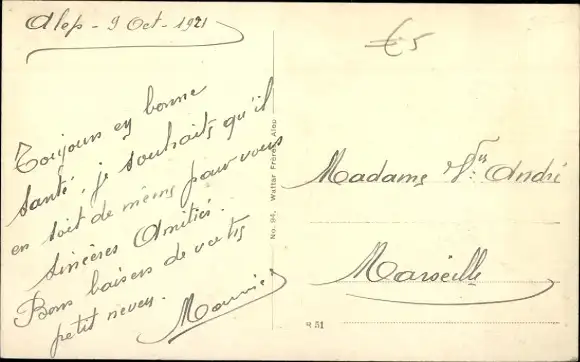 Alep - 9 Oct - 1921
€5
Toujours en bonne
santé, je souhaits qu'il
en soit de même pour vous
sincères Amitiés.
Bons baisers de votre
petit neveu.
Maurice
No. 94, Wattar Frères, Alep
Madame Vve André
Marseille
R 51